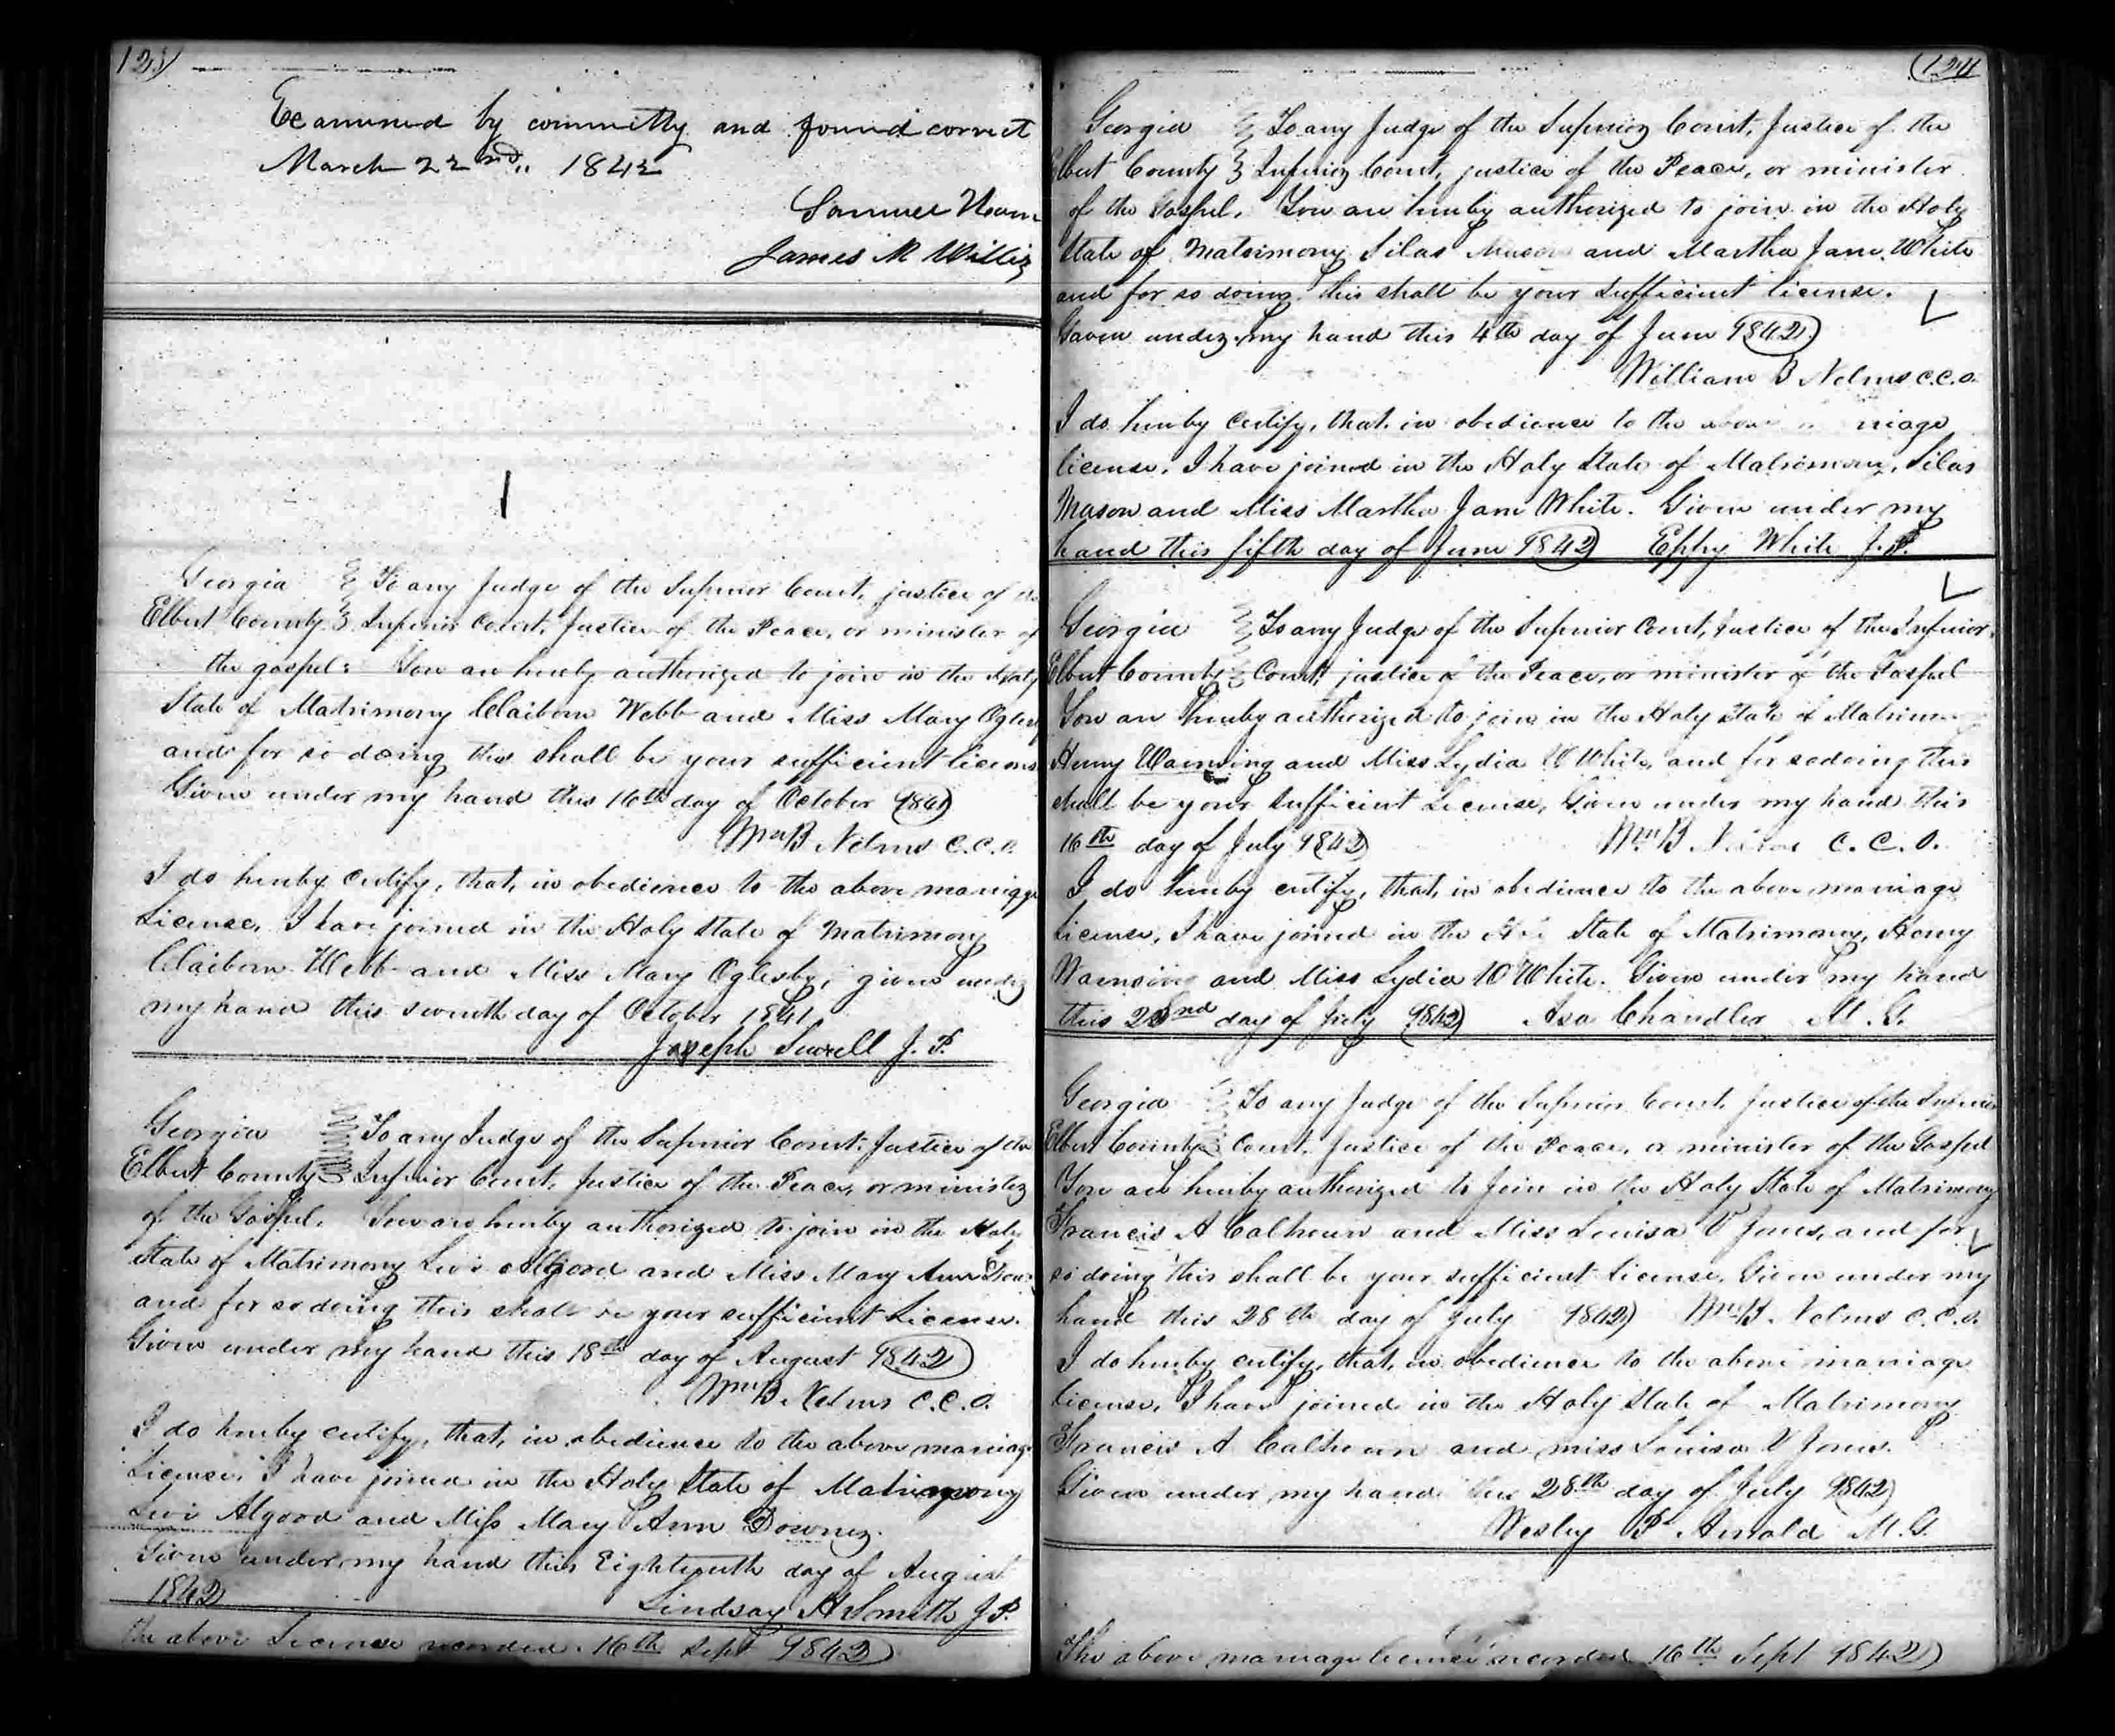 123)
Examined by committy and found correct
March 22nd,, 1842
Samuel
James M Willis
Georgia To any Judge of the Superior Court, justice of the
Elbert County Inferior Court, Justice of the Peace, or minister of
the gospel: You are hereby authorized to join in the Holy
State of Matrimony Claiborn Webb and Miss Mary Oglesby
and for so doing this shall be your sufficient license
Given under my hand this 16th day of October 1841)
Wm B Nelms C.C.O.
I do hereby certify, that, in obedience to the above marriage
License, I have joined in the Holy State of Matrimony
Claiborn Webb and Miss Mary Oglesby, given under
my hand this seventh day of October 1841
Joseph Sewell J. P.
Georgia To any Judge of the Superior Court, Justice of the
Elbert County Inferior Court, Justice of the Peace, or minister
of the Gospel. You are hereby authorized to join in the Holy
State of Matrimony Levi Allgood and Miss Mary Ann
and for so doing this shall be your sufficient License.
Given under my hand this 18th day of August 1842)
Wm B. Nelms C.C.O.
I do hereby certify, that, in obedience to the above marriage
License, I have joined in the Holy State of Matrimony
Levi Algood and Miss Mary Ann Downey.
Given under my hand this Eighteenth day of August
1842 Lindsay H Smith J P.
the above License recorded 16th Sept 1842)
(124
Georgia To any Judge of the Superior Court, Justice of the
Elbert County Inferior Court, justice of the Peace, or minister
of the Gospel. You are hereby authorized to join in the Holy
State of Matrimony Silas Mason and Martha Jane White
and for so doing this shall be your sufficient license.
Given under my hand this 4th day of June 1842)
William B Nelms C.C.O.
I do hereby certify, that, in obedience to the above marriage
license, I have joined in the Holy State of Matrimony, Silas
Mason and Miss Martha Jane White. Given under my
hand this fifth day of June 1842) Eppy White J. P.
Georgia To any Judge of the Superior Court, Justice of the Inferior
Elbert County Court, justice of the Peace, or minister of the Gospel
You are hereby authorized to join in the Holy State of Matrimony
Henry and Miss Lydia W White, and for so doing this
shall be your sufficient License, Given under my hand this
16th day of July 1842) Wm B Nelms C. C. O.
I do hereby certify, that, in obedience to the above marriage
License, I have joined in the Holy State of Matrimony, Henry
and Miss Lydia W White. Given under my hand
this day of July 1842) Asa Chandler M. G.
Georgia To any Judge of the Superior Court, Justice of the Inferior
Elbert County Court, Justice of the Peace, or minister of the Gospel
You are hereby authorized to join in the Holy State of Matrimony
Francis A Calhoun and Miss Louisa V Jones, and for
so doing this shall be your sufficient License, Given under my
hand this 28th day of July 1842) Wm B. Nelms C.C.O.
I do hereby certify, that, in obedience to the above marriage
license, I have joined in the Holy State of Matrimony
Francis A Calhoun and miss Louisa V Jones.
Given under my hand this 28th day of July 1842)
Wesley P Arnold M. G.
The above marriage licenses recorded 16th Sept 1842)